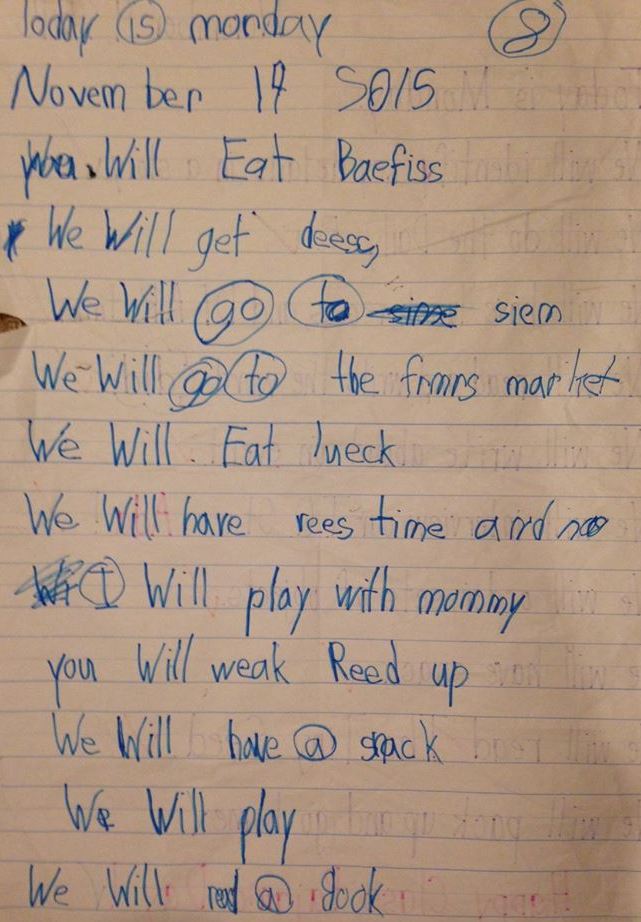 Today is monday 8
November 14 S015
You. Will Eat Baefiss
We Will get deess
We Will go to sime siem
We Will go to the frmrs market
We Will Eat lueck
We Will have rees time and no
I Will play with mommy
you Will weak Reed up
We Will have a snack
We Will play
We Will read a Book